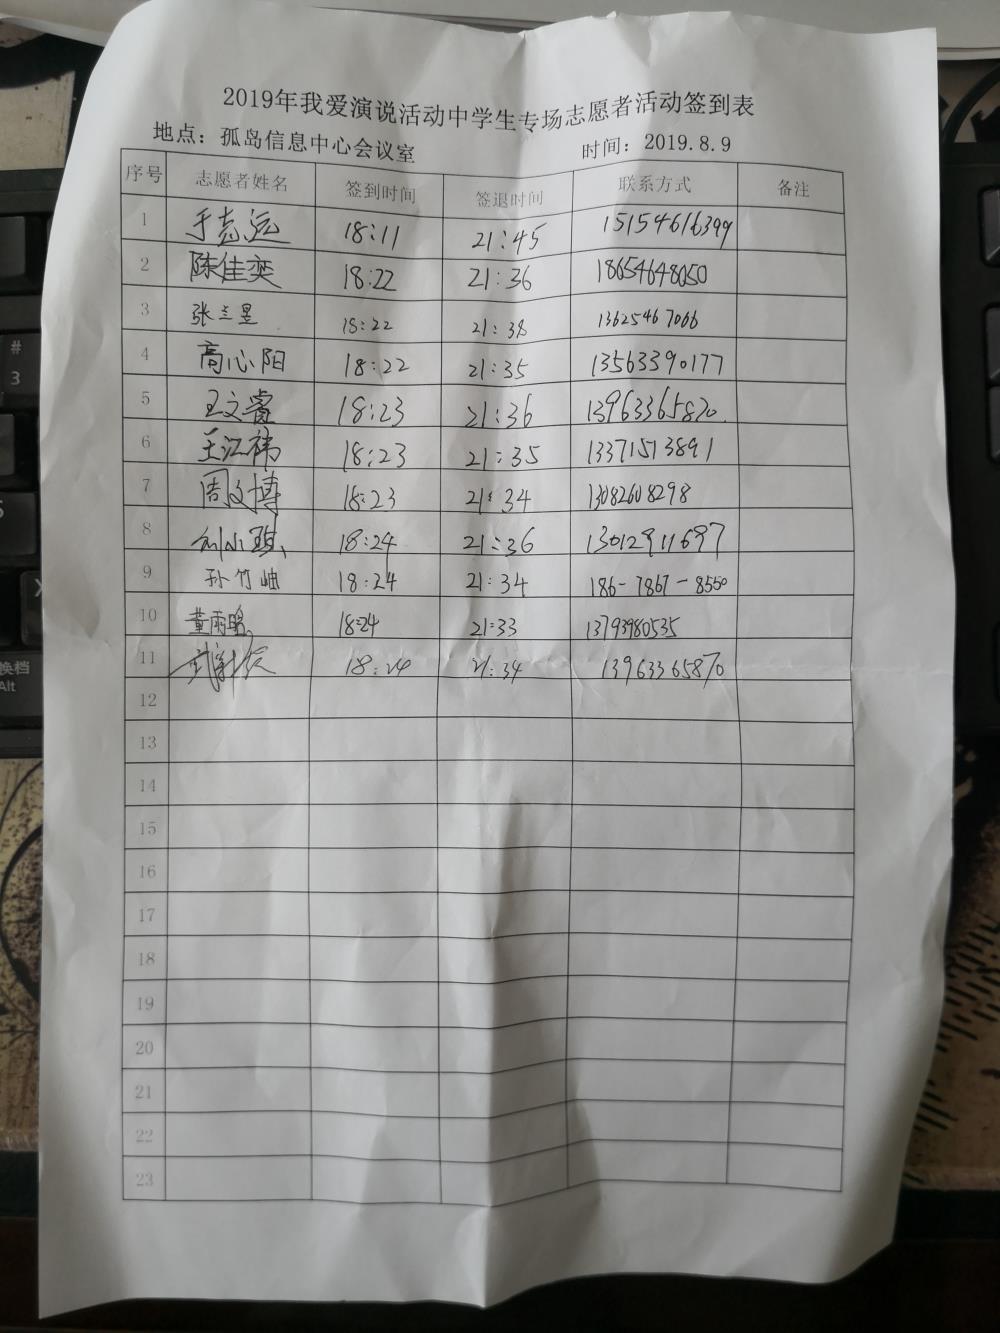 2019年我爱演说活动中学生专场志愿者活动签到表
地点：孤岛信息中心会议室 时间：2019.8.9
序号 志愿者姓名 签到时间 签退时间 联系方式 备注
1 于志远 18:11 21:45 15154616399
2 陈佳奕 18:22 21:36 18654648050
3 张三昱 18:22 21:38 13625467066
4 高心阳 18:22 21:35 13563390177
5 王文睿 18:23 21:36 13963365870
6 王江祎 18:23 21:35 13371513891
7 周文博 18:23 21:34 13082608298
8 刘小琪 18:24 21:36 13012911697
9 孙竹岫 18:24 21:34 186-7867-8550
10 董雨晗 18:24 21:33 13793980535
11 18:24 21:34 13963365870
12
13
14
15
16
17
18
19
20
21
22
23
#
3
换档
Alt